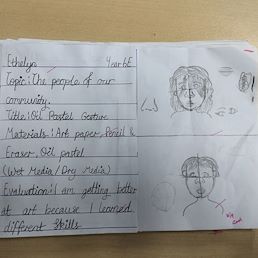 Ethelyn Year 6E
Topic: The people of our
community.
Title: Oil Pastel Gesture
Materials: Art paper, Pencil &
Eraser, Oil pastel
(Wet Media / Dry Media)
Evaluation: I am getting better
at art because I learned
different Skills